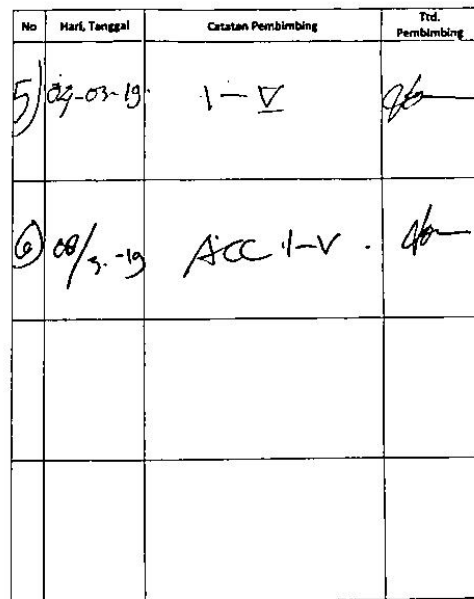 No Hari, Tanggal Catatan Pembimbing Ttd. Pembimbing
5) 04-03-19 I - V
6) 08/3.-19 ACC I-V.